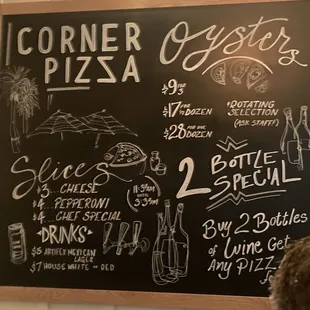 CORNER
PIZZA
Oysters
$9 FOR 3
$17 FOR ½ DOZEN
$28 FOR ONE DOZEN
ROTATING
SELECTION
(ASK STAFF!)
Slices
$3... CHEESE
$4... PEPPERONI
$4... CHEF SPECIAL
11:30AM
UNTIL
3:30PM
DRINKS
$5 ARTIFEX MEXICAN
LAGER
$7 HOUSE WHITE OR RED
2 BOTTLE
SPECIAL
Buy 2 Bottles
of Wine Get
Any PIZZ